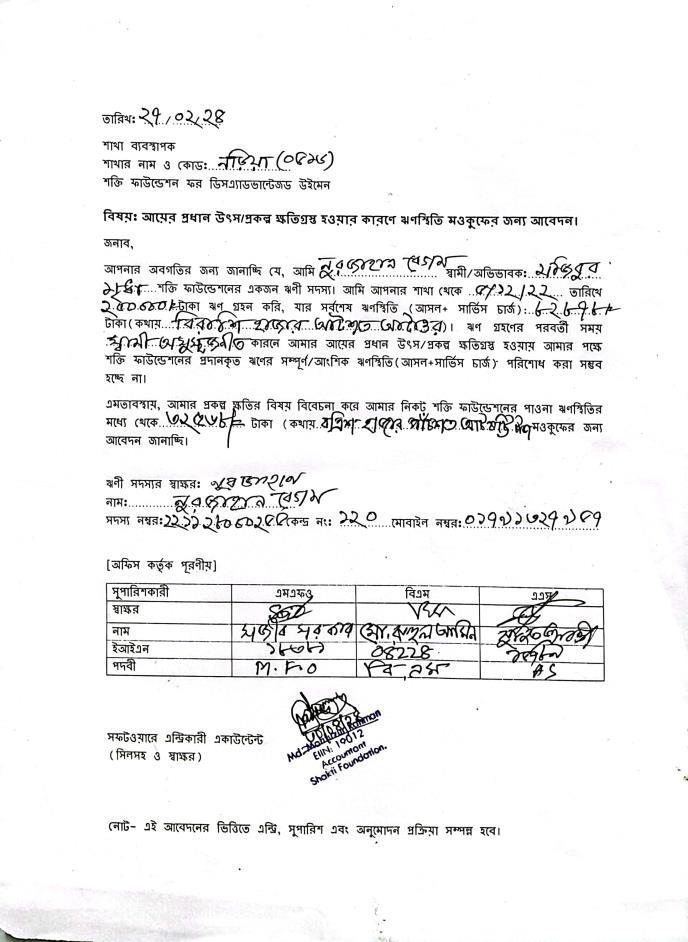 তারিখ: ২৭/০২/২৪
শাখা ব্যবস্থাপক
শাখার নাম ও কোড: নড়িয়া (০৪১৬)
শক্তি ফাউন্ডেশন ফর ডিসএ্যাডভান্টেজড উইমেন
বিষয়: আয়ের প্রধান উৎস/প্রকল্প ক্ষতিগ্রস্থ হওয়ার কারণে ঋণস্থিতি মওকুফের জন্য আবেদন।
জনাব,
আপনার অবগতির জন্য জানাচ্ছি যে, আমি নুরজাহান বেগম স্বামী/অভিভাবক:
শক্তি ফাউন্ডেশনের একজন ঋণী সদস্য। আমি আপনার শাখা থেকে তারিখে
টাকা ঋণ গ্রহন করি, যার সর্বশেষ ঋণস্থিতি (আসল+ সার্ভিস চার্জ):
টাকা (কথায় বিরাশি হাজার আটশত আটাত্তর)। ঋণ গ্রহণের পরবর্তী সময়
স্বামী কারনে আমার আয়ের প্রধান উৎস/প্রকল্প ক্ষতিগ্রস্থ হওয়ায় আমার পক্ষে
শক্তি ফাউন্ডেশনের প্রদানকৃত ঋণের সম্পূর্ণ/আংশিক ঋণস্থিতি(আসল+সার্ভিস চার্জ) পরিশোধ করা সম্ভব
হচ্ছে না।
এমতাবস্থায়, আমার প্রকল্প ক্ষতির বিষয় বিবেচনা করে আমার নিকট শক্তি ফাউন্ডেশনের পাওনা ঋণস্থিতির
মধ্যে থেকে ৩২৫৬৮/= টাকা (কথায় বত্রিশ হাজার পাঁচশত আটষট্টি মওকুফের জন্য
আবেদন জানাচ্ছি।
ঋণী সদস্যর স্বাক্ষর: নুরজাহান
নাম: নুরজাহান বেগম
সদস্য নম্বর: কেন্দ্র নং: ১১০ মোবাইল নম্বর:
[অফিস কর্তৃক পূরণীয়]
সুপারিশকারী এমএফও বিএম এএস
স্বাক্ষর
নাম সজীব সরকার মো. রুহুল আমিন
ইআইএন 08228
পদবী M.F.O বি,এম AS
সফটওয়ারে এন্ট্রিকারী একাউন্টেন্ট
(সিলসহ ও স্বাক্ষর)
Rahman
EIIN: 19012
Accountant
Shakti Foundation.
নোট- এই আবেদনের ভিত্তিতে এন্ট্রি, সুপারিশ এবং অনুমোদন প্রক্রিয়া সম্পন্ন হবে।